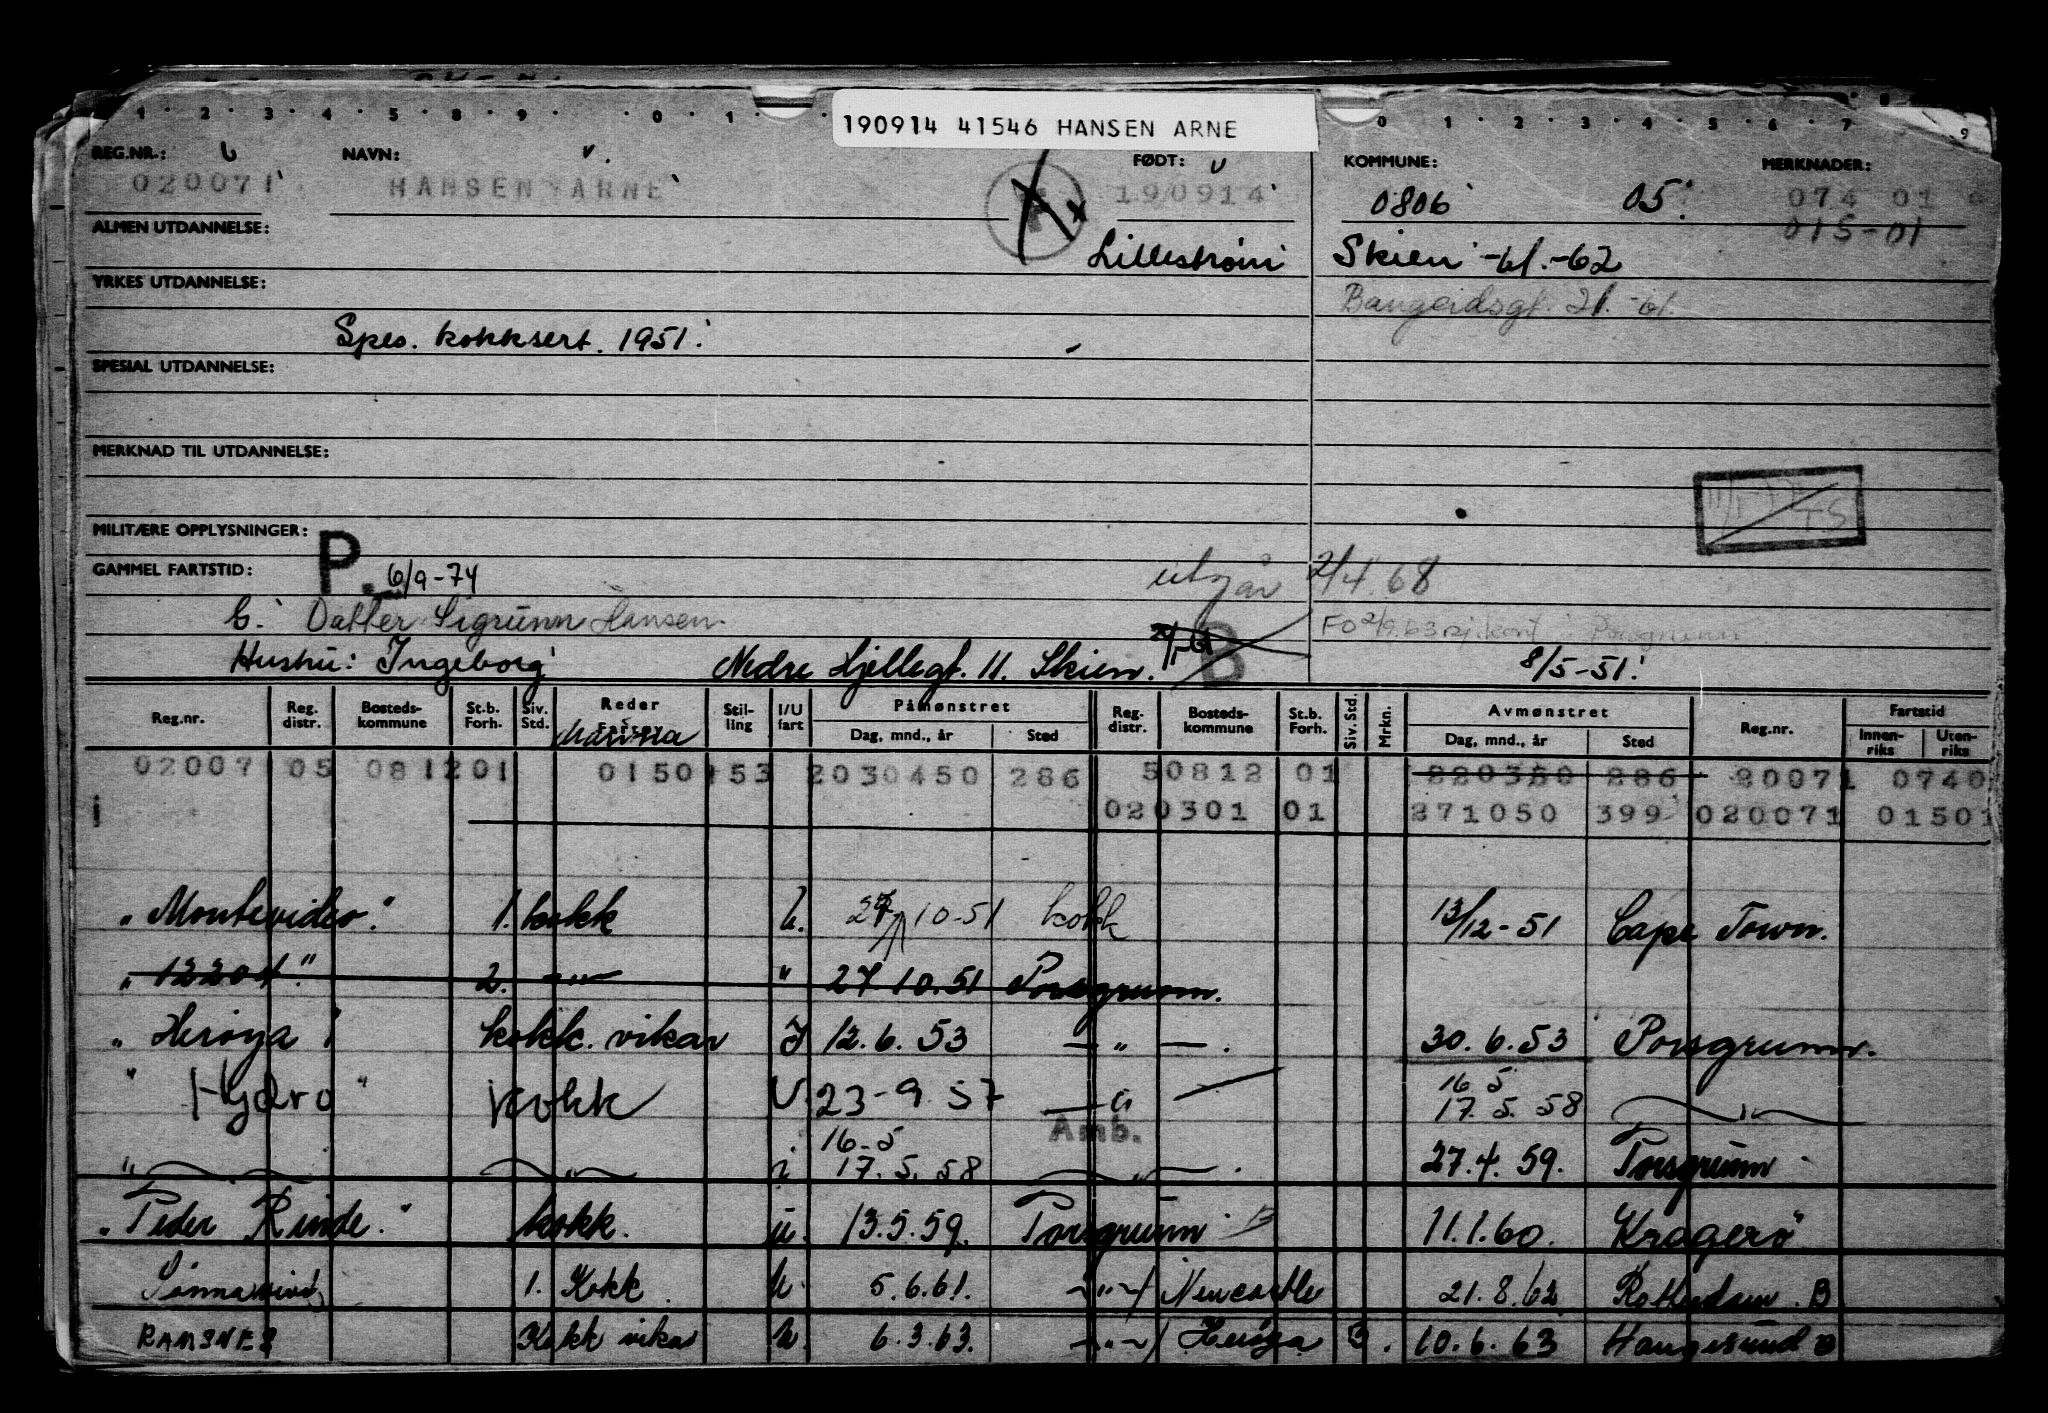 190914 41546 HANSEN ARNE
REG.NR.: NAVN: v. FØDT: KOMMUNE: MERKNADER:
020071 HANSEN ARNE 190914 0806 05. 074 01
015-01
ALMEN UTDANNELSE: Lillestrøm Skien -61.-62
YRKES UTDANNELSE: 21.
Spes. kokksert. 1951.
SPESIAL UTDANNELSE:
MERKNAD TIL UTDANNELSE:
T.S
MILITÆRE OPPLYSNINGER: P.
GAMMEL FARTSTID: 6/9-74 utgår 2/4.68
G. Datter Sigrunn Hansen. FO 2/9.63 sj.kont. Porsgrunn
Hustru: Ingeborg Nedre Hjellegt. 11. Skien. B 8/5-51.
Reg.nr. Reg. distr. Bosteds-kommune St.b. Forh. Siv. Std. Reder Stil-ling I/U fart Påmønstret Dag, mnd., år Sted Reg. distr. Bosteds-kommune St.b. Forh. Siv. Std. Mrkn. Avmønstret Dag, mnd., år Sted Reg.nr. Fartstid Innen-riks Uten-riks
02007 05 081201 0150 153 2030450 286 50812 01 220350 286 20071 0740
020301 01 271050 399 020071 01501
"Montevideo." 1. kokk u. 27/10-51 kokk 13/12-51 Cape Town.
"12204." 2. -"- " 27.10.51 Porsgrunn.
"Herøya" kokk. vikar I 12.6.53 -"- . 30.6.53 Porsgrunn.
" Hydro " kokk U. 23-9.57 -"- 16.5 17.5.58 -"-
Amb.
" -"- i 16-5 17.5.58 -"- . 27.4.59. Porsgrunn
"Peder Rinde." kokk. u. 13.5.59. Porsgrunn 11.1.60. Kragerø
1. Kokk. u. 5.6.61. -"-/ Newcastle 21.8.62 Rotterdam. B
RAMSNES Kokk vikar u. 6.3.63. -"-/ Herøya B. 10.6.63 Haugesund B